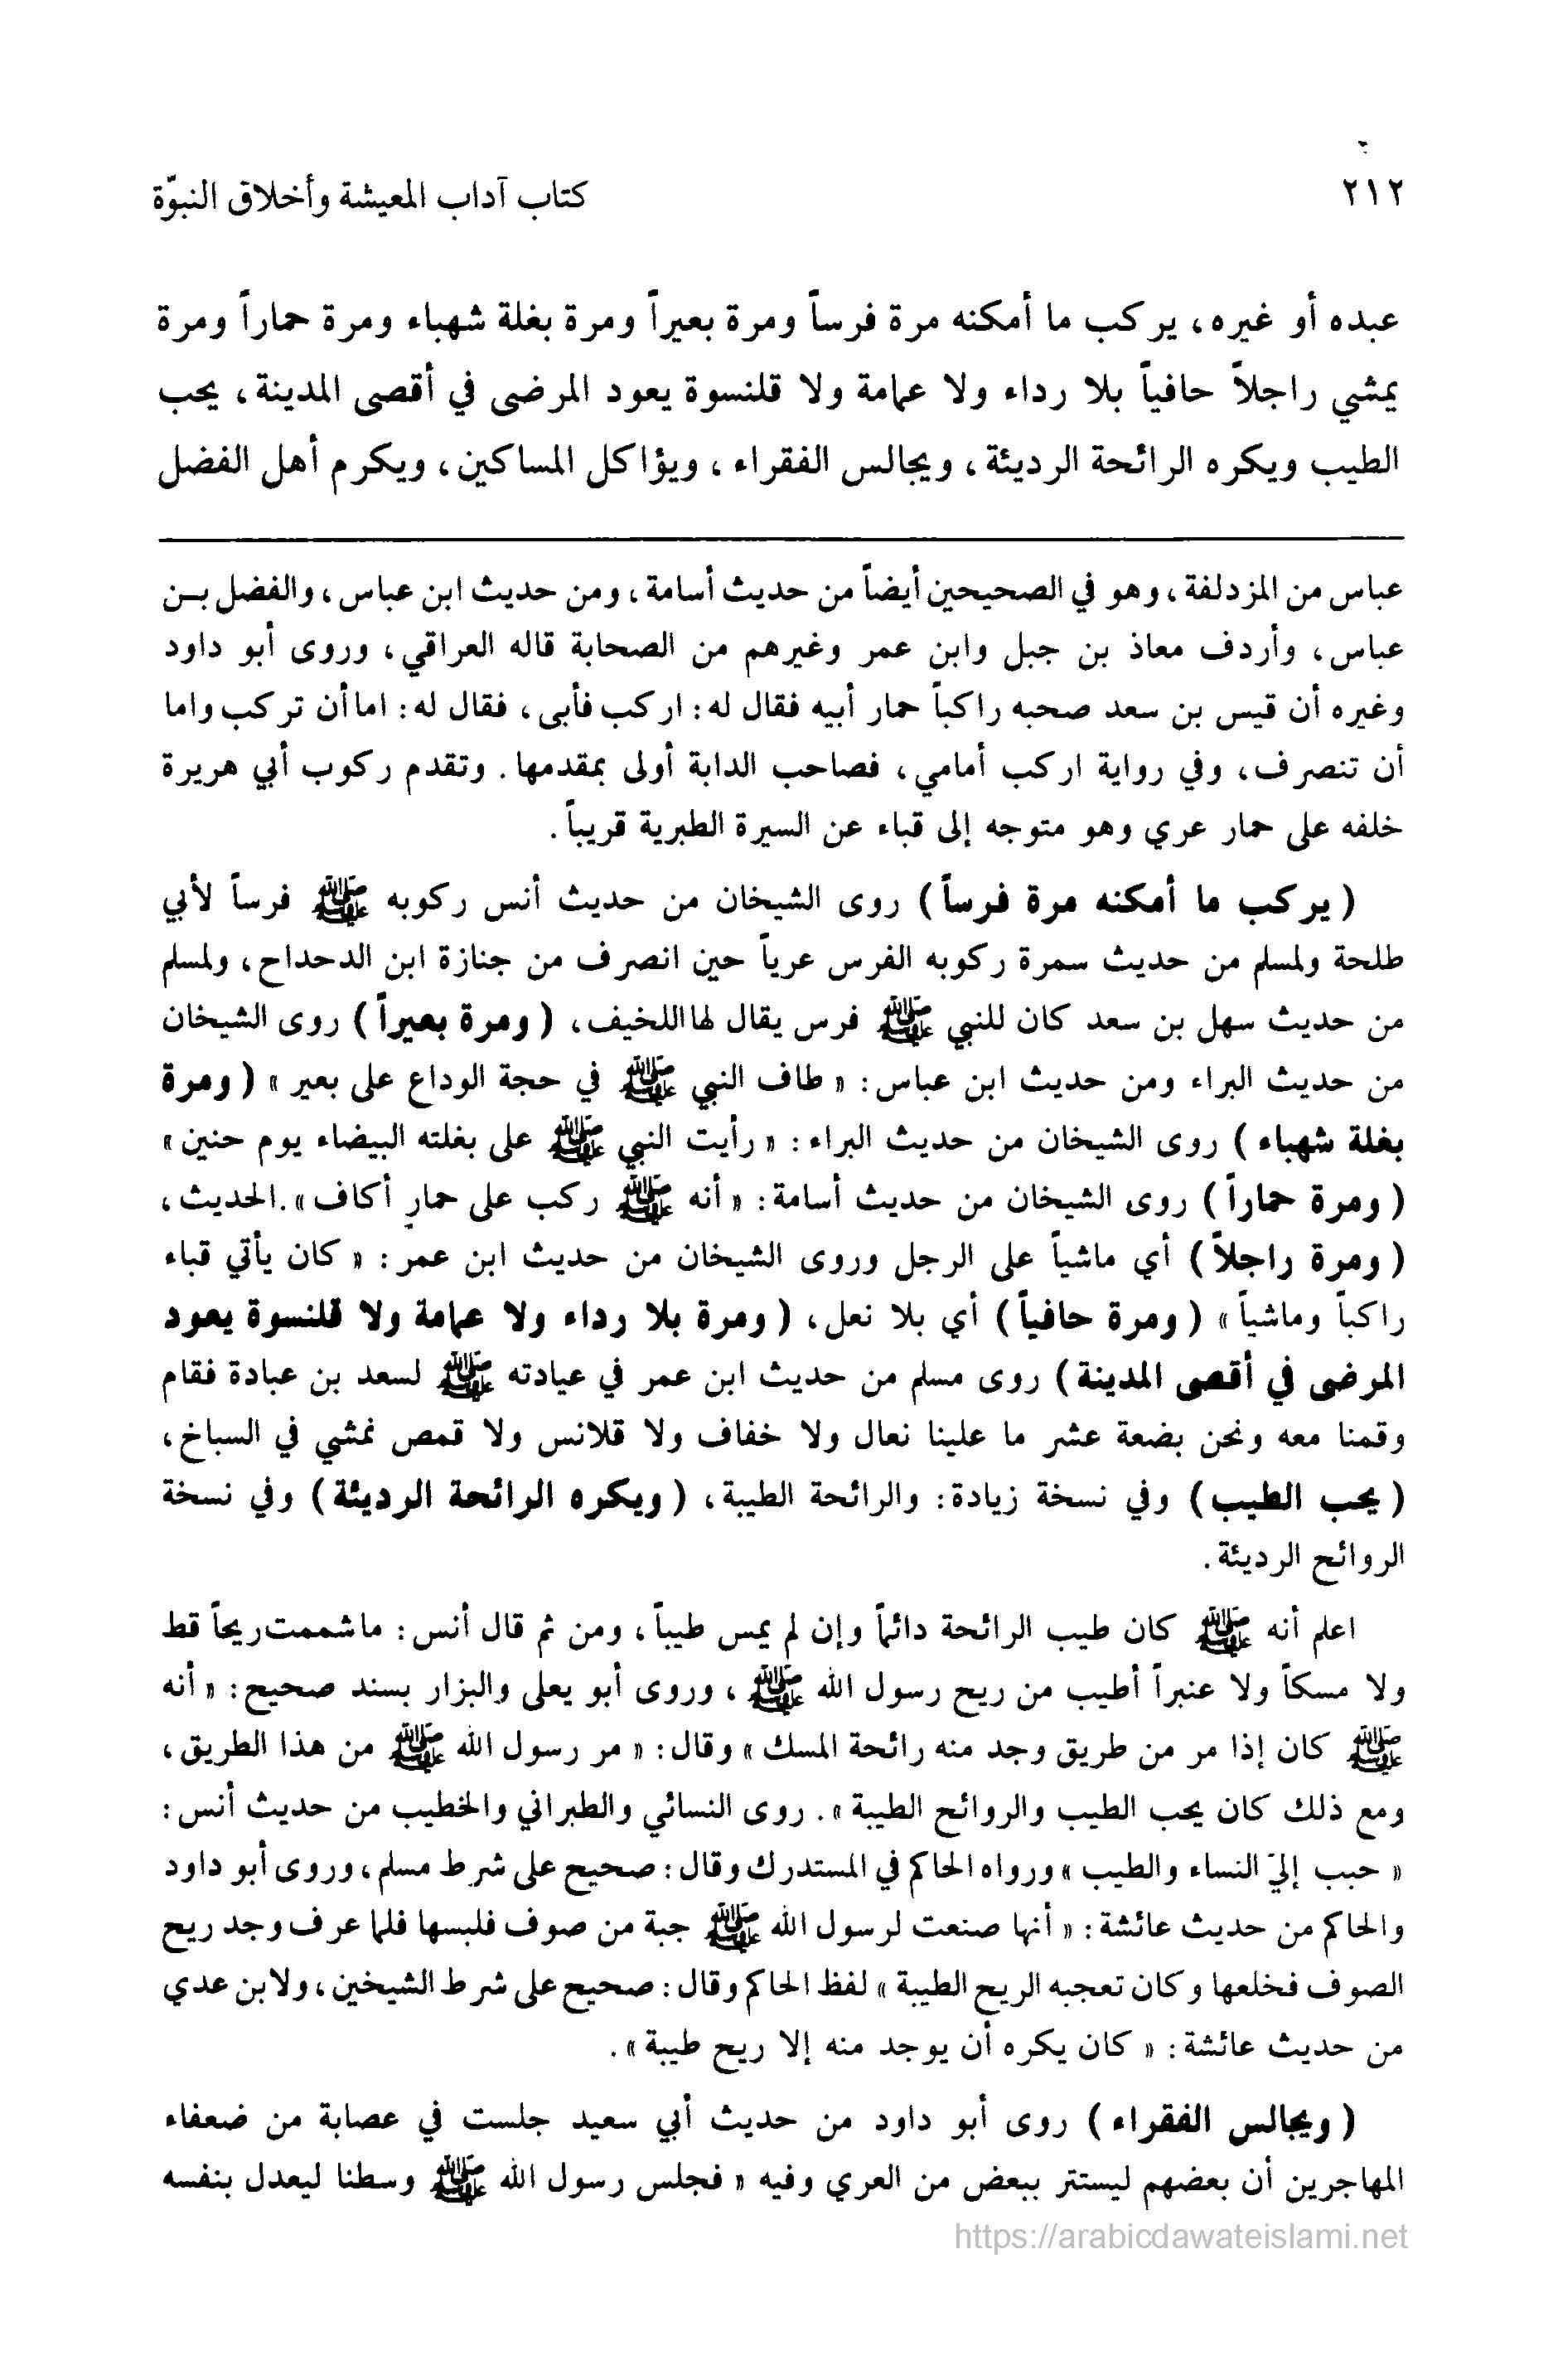 ٢١٢
كتاب آداب المعيشة وأخلاق النبوّة
عبده أو غيره، يركب ما أمكنه مرة فرساً ومرة بعيراً ومرة بغلة شهباء ومرة حماراً ومرة
يمشي راجلاً حافياً بلا رداء ولا عمامة ولا قلنسوة يعود المرضى في أقصى المدينة، يحب
الطيب ويكره الرائحة الرديئة، ويجالس الفقراء، ويؤاكل المساكين، ويكرم أهل الفضل
عباس من المزدلفة، وهو في الصحيحين أيضاً من حديث أسامة، ومن حديث ابن عباس، والفضل بـن
عباس، وأردف معاذ بن جبل وابن عمر وغيرهم من الصحابة قاله العراقي، وروى أبو داود
وغيره أن قيس بن سعد صحبه راكباً حمار أبيه فقال له: اركب فأبى، فقال له: اما أن تركب واما
أن تنصرف، وفي رواية اركب أمامي، فصاحب الدابة أولى بمقدمها. وتقدم ركوب أبي هريرة
خلفه على حمار عري وهو متوجه إلى قباء عن السيرة الطبرية قريباً.
(يركب ما أمكنه مرة فرساً) روى الشيخان من حديث أنس ركوبه ﷺ فرساً لأبي
طلحة ولمسلم من حديث سمرة ركوبه الفرس عرياً حين انصرف من جنازة ابن الدحداح، ولمسلم
من حديث سهل بن سعد كان للنبي ﷺ فرس يقال لها اللخيف، (ومرة بعيراً) روى الشيخان
من حديث البراء ومن حديث ابن عباس: «طاف النبي ﷺ في حجة الوداع على بعير» (ومرة
بغلة شهباء) روى الشيخان من حديث البراء: «رأيت النبي ﷺ على بغلته البيضاء يوم حنين»
(ومرة حماراً) روى الشيخان من حديث أسامة: «أنه ﷺ ركب على حمارٍ أكاف».الحديث،
(ومرة راجلاً) أي ماشياً على الرجل وروى الشيخان من حديث ابن عمر: «كان يأتي قباء
راكباً وماشياً» (ومرة حافياً) أي بلا نعل، (ومرة بلا رداء ولا عمامة ولا قلنسوة يعود
المرضى في أقصى المدينة) روى مسلم من حديث ابن عمر في عيادته ﷺ لسعد بن عبادة فقام
وقمنا معه ونحن بضعة عشر ما علينا نعال ولا خفاف ولا قلانس ولا قمص نمشي في السباخ،
(يحب الطيب) وفي نسخة زيادة: والرائحة الطيبة، (ويكره الرائحة الرديئة) وفي نسخة
الروائح الرديئة.
اعلم أنه ﷺ كان طيب الرائحة دائماً وإن لم يمس طيباً، ومن ثم قال أنس: ما شممت ريحاً قط
ولا مسكاً ولا عنبراً أطيب من ريح رسول الله ﷺ، وروى أبو يعلى والبزار بسند صحيح: «أنه
ﷺ كان إذا مر من طريق وجد منه رائحة المسك» وقال: «مر رسول الله ﷺ من هذا الطريق،
ومع ذلك كان يحب الطيب والروائح الطيبة». روى النسائي والطبراني والخطيب من حديث أنس:
«حبب إليّ النساء والطيب» ورواه الحاكم في المستدرك وقال: صحيح على شرط مسلم، وروى أبو داود
والحاكم من حديث عائشة: «أنها صنعت لرسول الله ﷺ جبة من صوف فلبسها فلما عرف وجد ريح
الصوف فخلعها وكان تعجبه الريح الطيبة» لفظ الحاكم وقال: صحيح على شرط الشيخين، ولابن عدي
من حديث عائشة: «كان يكره أن يوجد منه إلا ريح طيبة».
(ويجالس الفقراء) روى أبو داود من حديث أبي سعيد جلست في عصابة من ضعفاء
المهاجرين أن بعضهم ليستتر ببعض من العري وفيه «فجلس رسول الله ﷺ وسطنا ليعدل بنفسه
https://arabicdawateislami.net